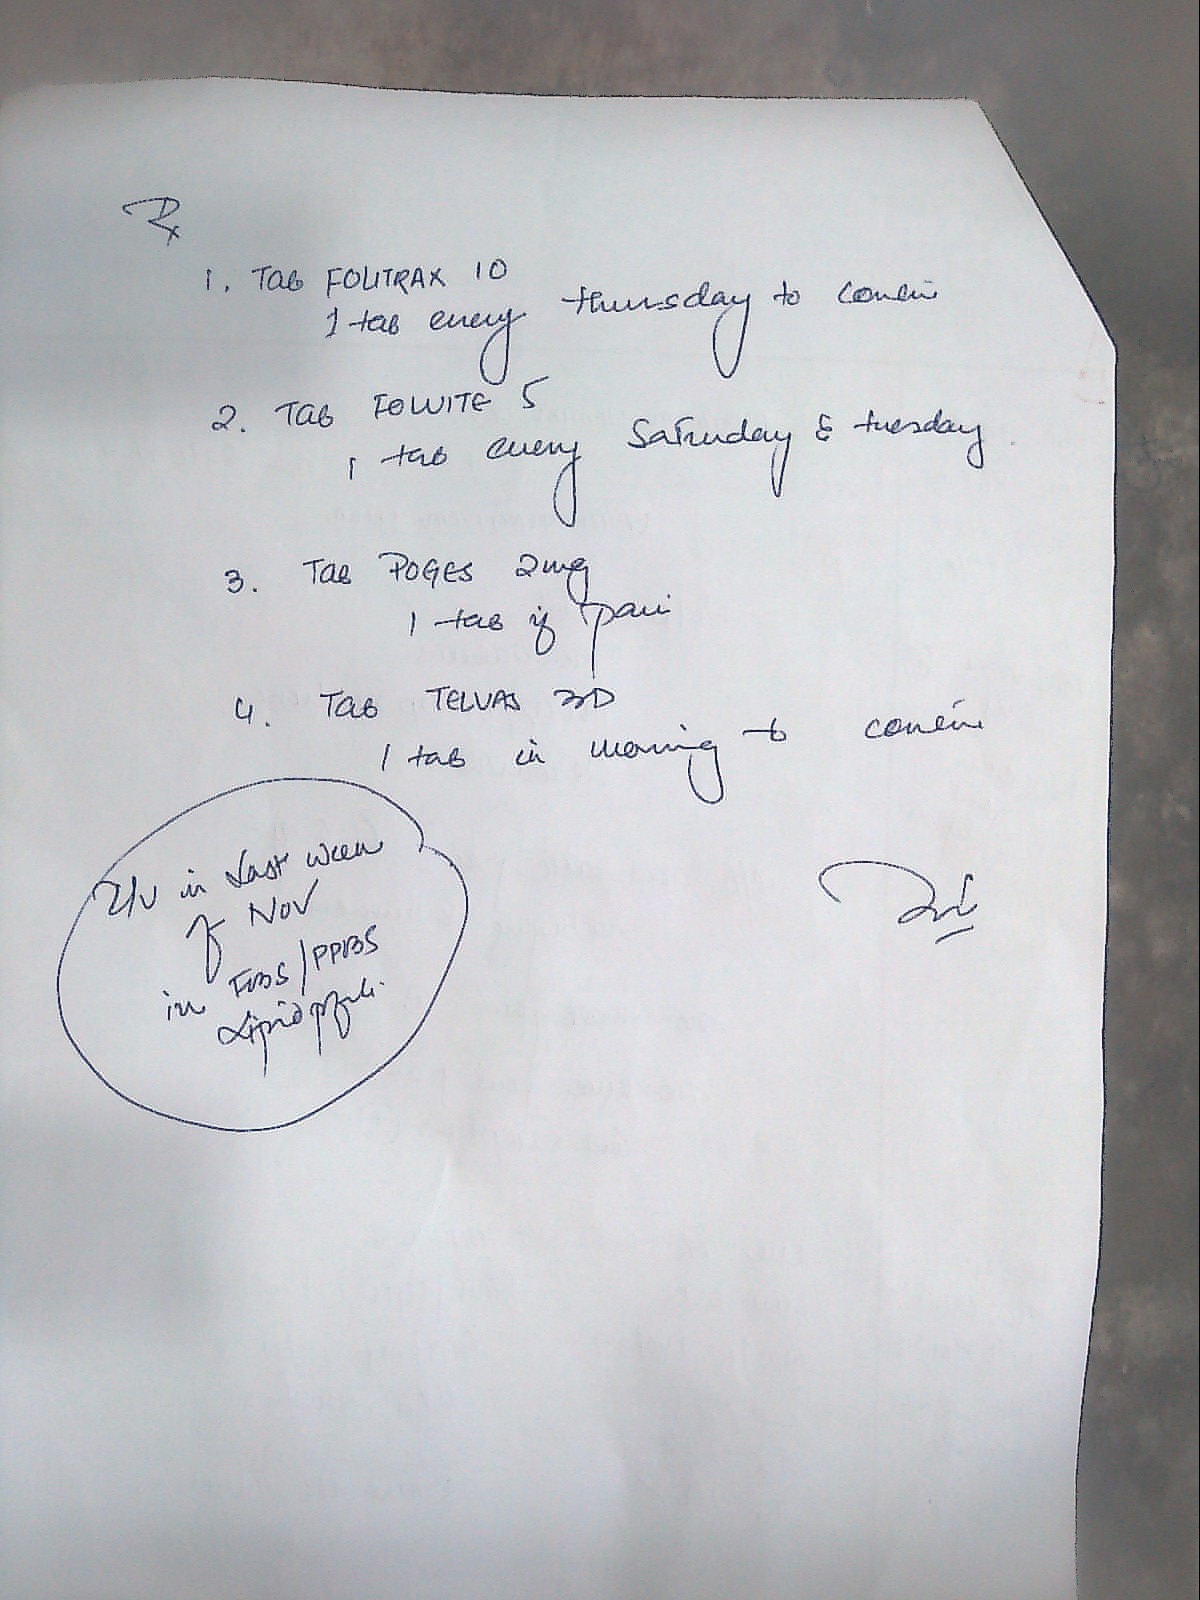 Rx
1. Tab FOLITRAX 10
1 tab every thursday to continue
2. Tab FOLVITE 5
1 tab every Saturday & tuesday
3. Tab POGES 2mg
1 tab if pain
4. Tab TELVAS 3D
1 tab in morning to continue
R/V in Last week
of Nov
FBS/PPBS
Lipid profile.